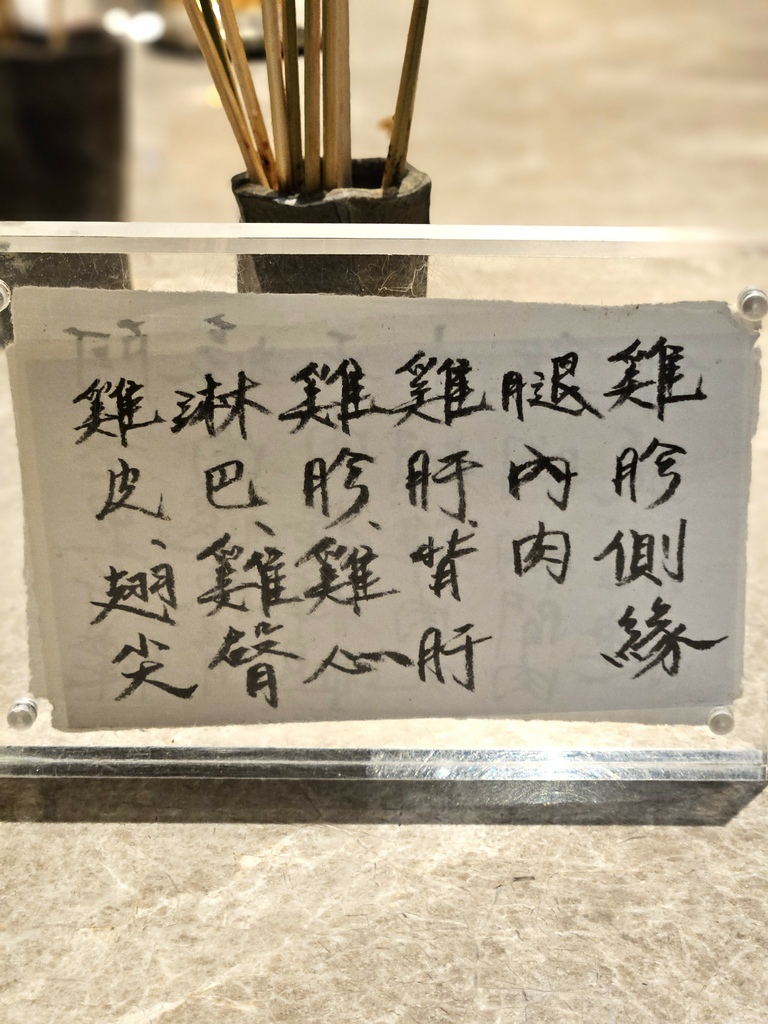 雞胗側緣
腿內肉
雞肝、背肝
雞胗、雞心
淋巴、雞腎
雞皮、翅尖